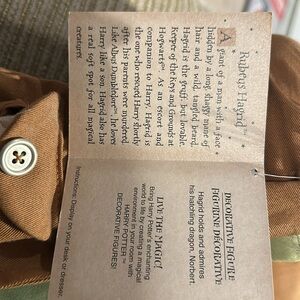 Rubeus Hagrid
A giant of a man with a face
hidden by a long, shaggy mane of
hair and wild, tangled beard,
Hagrid is the gruff but lovable
Keeper of the Keys and Grounds at
Hogwarts. As an escort and
companion to Harry, Hagrid is
the one who rescued Harry shortly
after his parents were murdered.
Like Albus Dumbledore™, he loves
Harry like a son. Hagrid also has
a real soft spot for all magical
creatures.
DECORATIVE FIGURE
FIGURINE DÉCORATIVE
Hagrid holds and admires
his hatchling dragon, Norbert.
LIVE THE MAGIC!
Bring Harry Potter's enchanting
world to life by creating a magical
environment in your room with
HARRY POTTER™
DECORATIVE FIGURES!
Instructions: Display on your desk or dresser.